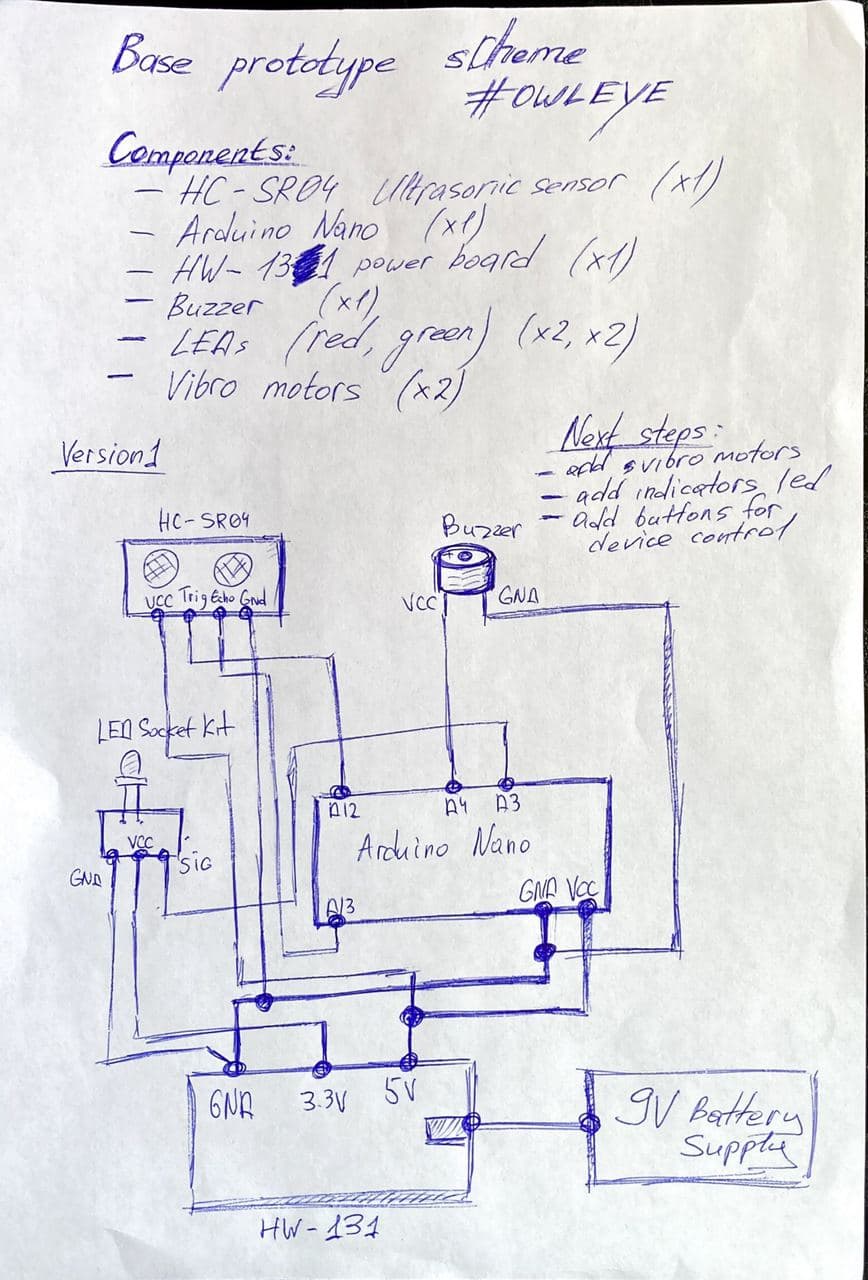 Base prototype scheme
#OWLEYE
Components:
– HC-SR04 Ultrasonic sensor (x1)
– Arduino Nano (x1)
– HW-131 power board (x1)
– Buzzer (x1)
– LEDs (red, green) (x2, x2)
– Vibro motors (x2)
Version1
Next steps:
– add vibro motors
– add indicators led
– add buttons for
device control
HC-SR04
VCC Trig Echo Gnd
Buzzer
+
VCC GND
LED Socket Kit
VCC
GND SIG
D12 D4 D3
Arduino Nano
D13 GND VCC
GND 3.3V 5V
HW-131
9V Battery
Supply